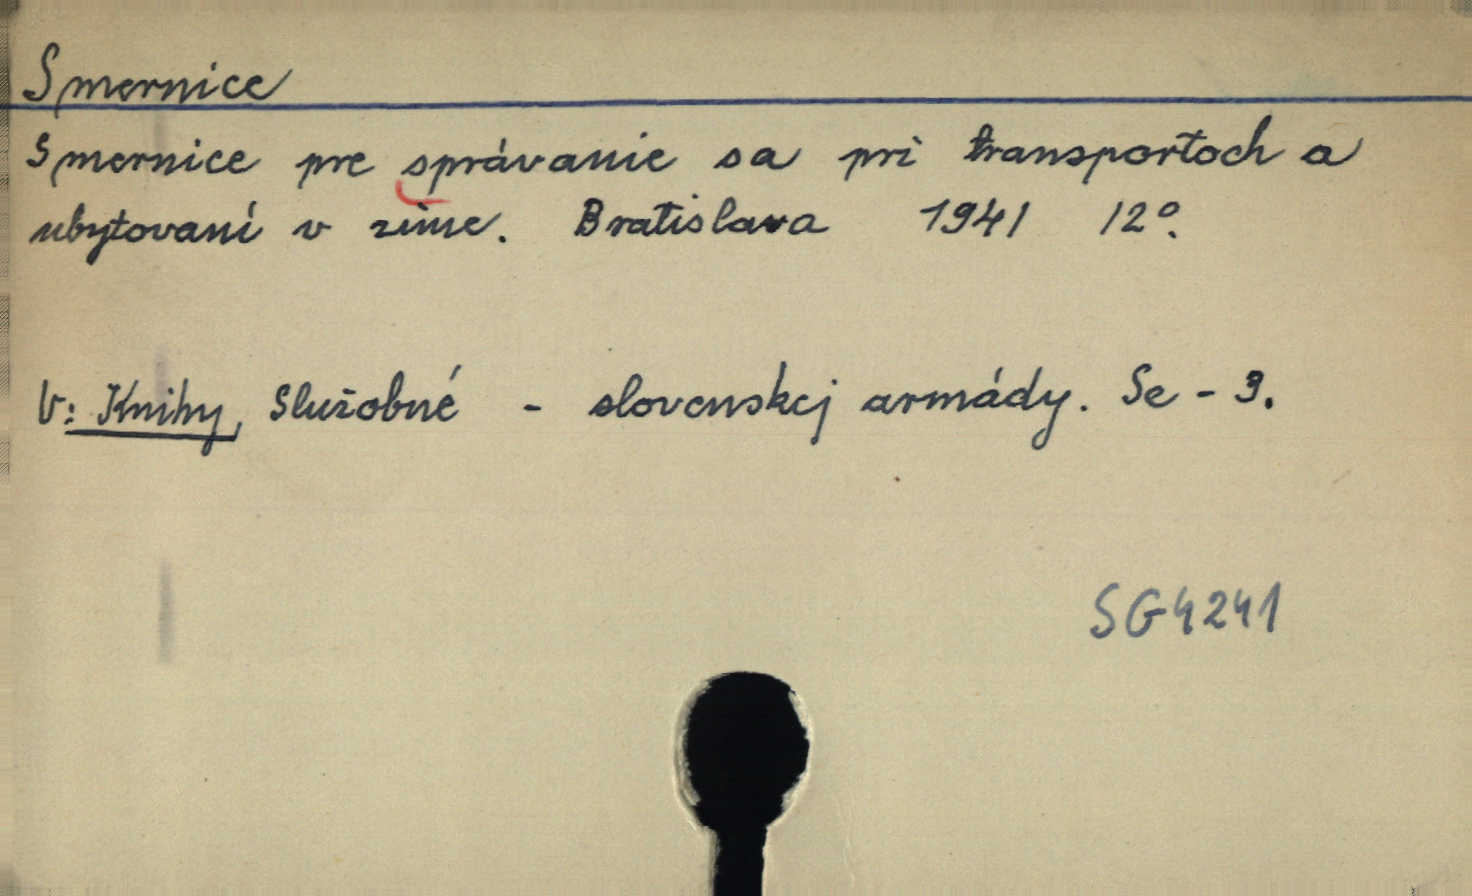 Smernice
Smernice pre správanie sa pri transportoch a
ubytovaní v zime. Bratislava 1941 12°.
V: Knihy, Služobné - slovenskej armády. Se - 3.
SG4241